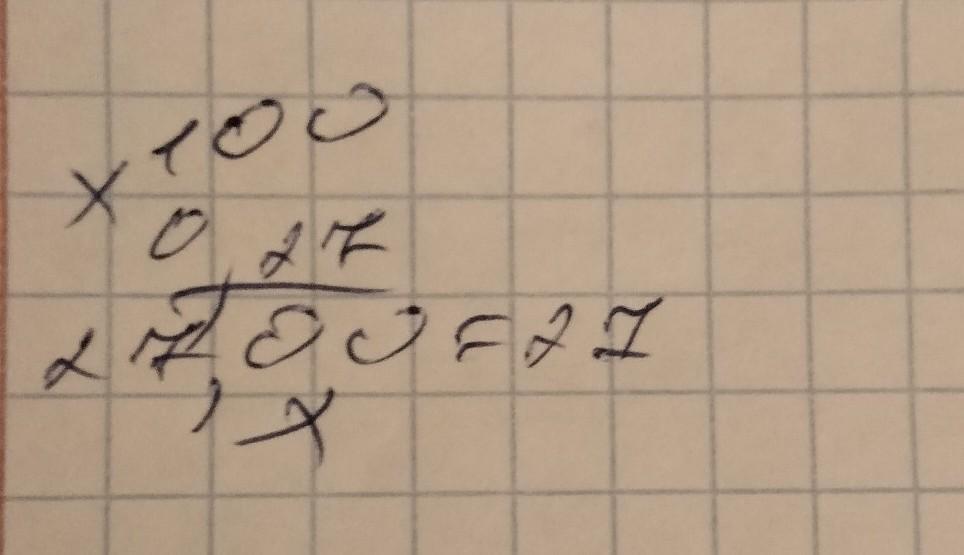 × 100
0,27
27,00 = 27
, x